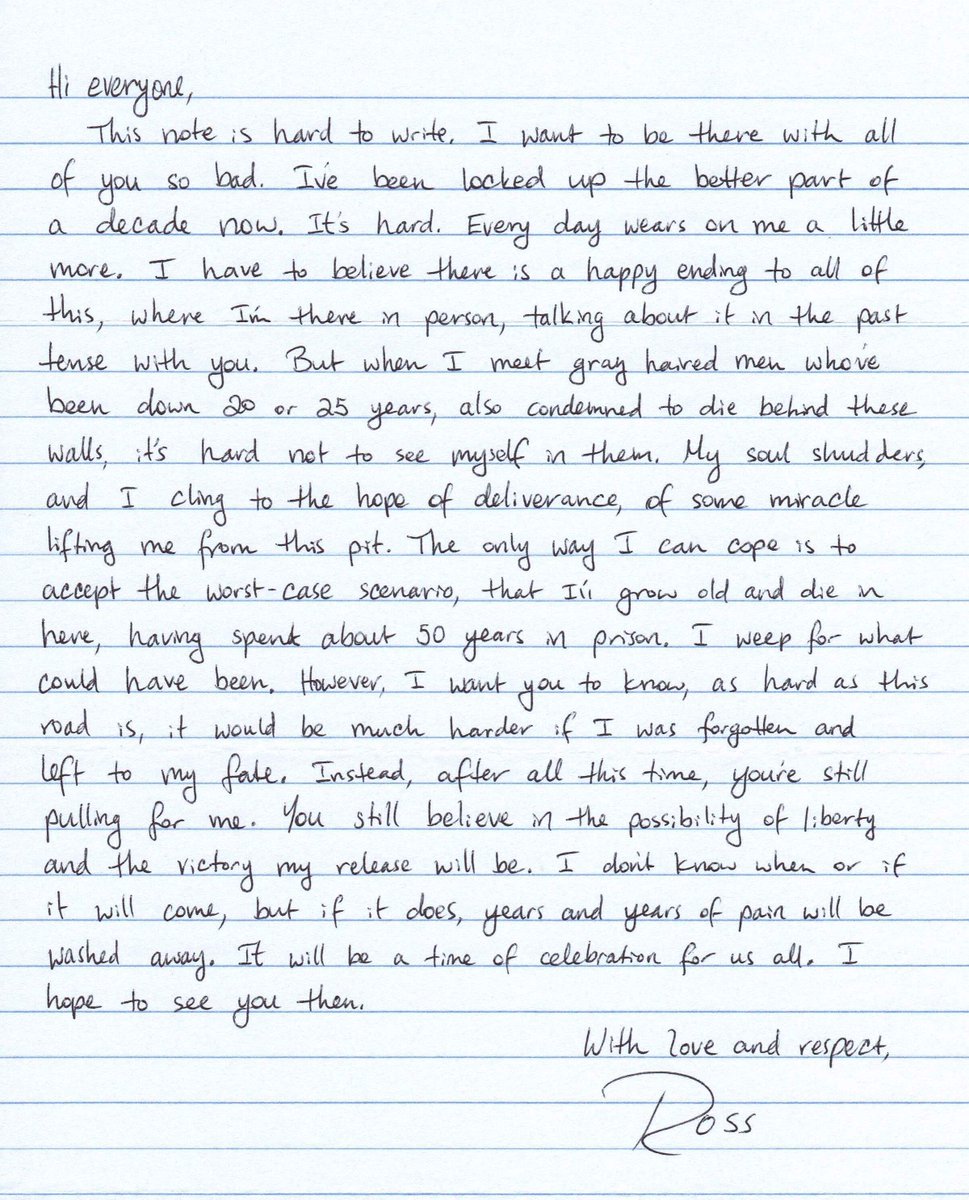 Hi everyone,
This note is hard to write. I want to be there with all
of you so bad. I've been locked up the better part of
a decade now. It's hard. Every day wears on me a little
more. I have to believe there is a happy ending to all of
this, where I'm there in person, talking about it in the past
tense with you. But when I meet gray haired men who've
been down 20 or 25 years, also condemned to die behind these
walls, it's hard not to see myself in them. My soul shudders,
and I cling to the hope of deliverance, of some miracle
lifting me from this pit. The only way I can cope is to
accept the worst-case scenario, that I'll grow old and die in
here, having spent about 50 years in prison. I weep for what
could have been. However, I want you to know, as hard as this
road is, it would be much harder if I was forgotten and
left to my fate. Instead, after all this time, you're still
pulling for me. You still believe in the possibility of liberty
and the victory my release will be. I don't know when or if
it will come, but if it does, years and years of pain will be
washed away. It will be a time of celebration for us all. I
hope to see you then.
With love and respect,
Ross